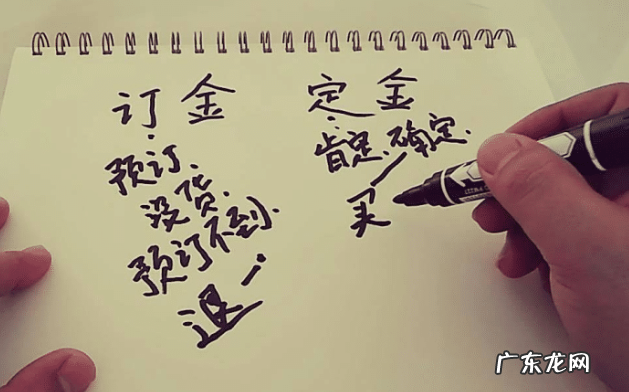 订金
预订.
没货.
预订不到.
退
定金
肯定.确定.
买
广东龙网